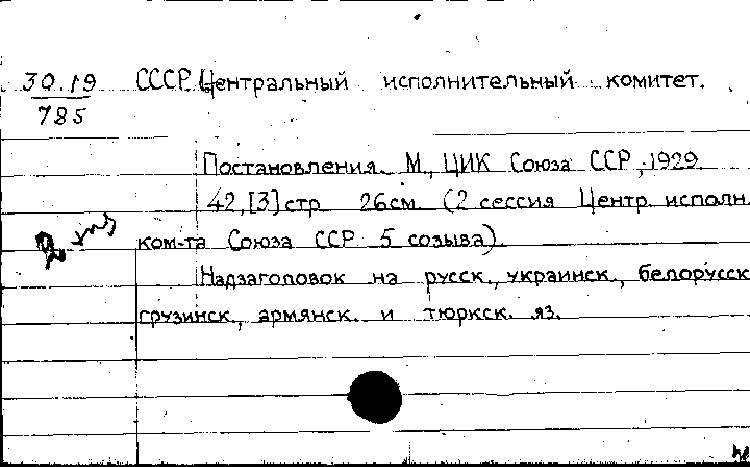 30.19 СССР. Центральный исполнительный комитет.
785
Постановления. М., ЦИК Союза ССР, 1929.
42,[3] стр. 26 см. (2 сессия Центр. исполн.
ком-та Союза ССР 5 созыва).
Надзаголовок на русск., украинск., белорусск.
грузинск., армянск. и тюркск. яз.